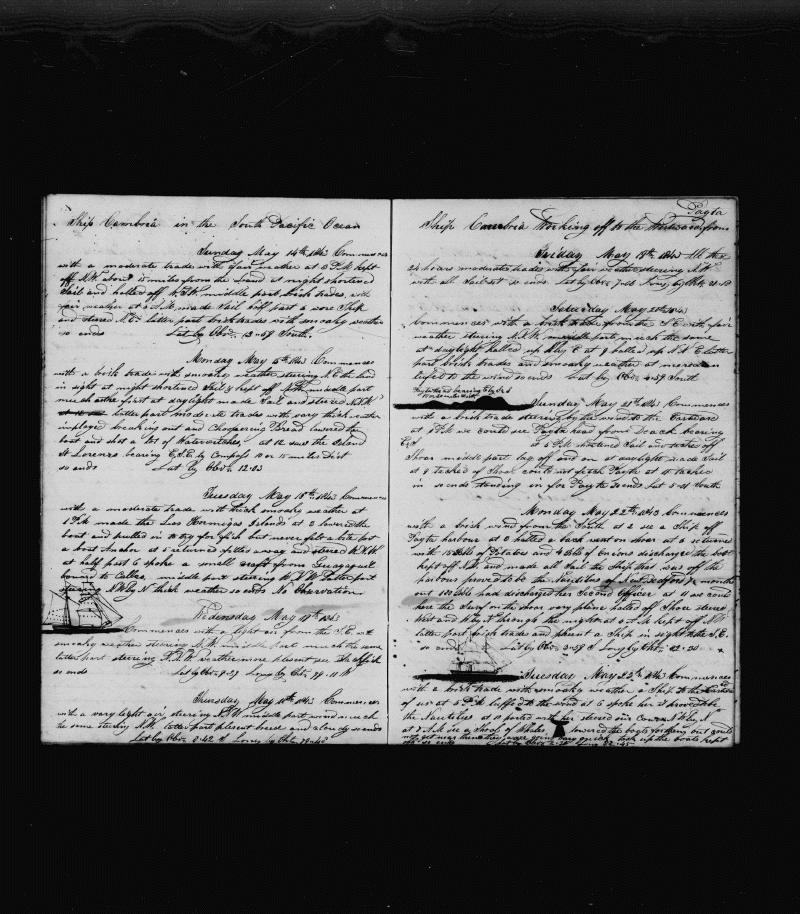 Ship Cambria in the South Pacific Ocean
Sunday May 14th 1843 Commences
with a moderate trade with fair weather at 3 P.M. kept
off N.W. about 15 miles from the Land at night shortened
Sail and halled off W.S.W. middle part brisk trades, with
fair weather at M. made Sail off part a wore Ship
and steered N. latter part brisk trades with smoaky weather
so ends Lat by Obs. 13-09 South.
Monday May 15th 1843 Commences
with a brisk trade with smoaky weather steering N.E. the land
in sight at night shortened Sail & kept off middle part
much as the first at daylight made Sail and steered N.N.
latter part moderate trades with very thick weather
imployed breaking out and Chopering Bread lowered the
boat and shot a lot of at 12 saw the Island
St Lorenzo bearing E.S.E. by Compass 10 or 15 miles Dist
so ends Lat by Obs. 12-03
Tuesday May 16th 1843 Commences
with a moderate trade with thick smoaky weather at
1 P.M. made the Las Hormigas Islands at 3 lowered the
boat and pulled in to try for fish but never felt a bite got
a boat Anchor at 5 returned filled away and steered W.N.W
at half past 6 spoke a small craft from Guayaquil
bound to Callao, middle part steering W.N.W latter part
steering N.W by N thick weather so ends No Observation
Wednesday May 17th 1843
Commences with a light air from the S.E. with
smoaky weather steering N.W. middle part much the same
latter part steering N.W. weather more plesent see Blackfish
so ends Lat by Obs. 9-29 Long by Chr. 79-11 W
Thursday May 18th 1843 Commences
with a very light air steering N.W. middle part wind much
the same steering N.W. latter part plesent breese and cloudy so ends
Lat by Obs. 8-42 S Long by Chr.
Ship Cambria Working off to the Westward from
Payta
Friday May 19th 1843 All these
24 hours moderate trades with fair weather steering N.W
with all Sail set so ends Lat by Obs. Long by Chr.
Saturday May 20th 1843
Commences with a brisk trade from the S.E. with fair
weather steering N.N.W. middle part much the same
at daylight halled up N by E at 9 halled up latter
part brisk trade and smoaky weather at meredian
lufed to the wind so ends Lat by Obs. 4-59 South
Sunday May 21st 1843 Commences
with a brisk trade steering by the wind to the Eastward
at 4 P.M. we could see Payta head from Deack bearing
E.S at 5 P.M. shortened Sail and tacked off
Shoar middle part lay off and on at daylight made Sail
at 8 tacked of Shoar could not fetch Payta at 10 tacked
in so ends standing in for Payta So ends Lat 5-01 South
Monday May 22nd 1843 Commences
with a brisk wind from the South at 2 see a Ship off
Payta harbour at 3 halled a back went on shoar at 5 returned
with 15 bbls of Potatoes and 4 bbls of Onions discharged the boat
kept off N.W and made all Sail the Ship that was off the
harbour proved to be the Nautilus of New Bedford months
out 150 bbls had discharged her Second Officer at 11 we could
hear the Surf on the shoar very plane halled off Shoar steered
West and kept it through the night at 6 A.M kept off N.W
latter part brisk trades and plesent a Ship in sight to the S.E.
so ends Lat by Obs. 3-59 S Long by Chr. 82-20
Tuesday May 23rd 1843 Commences
with a brisk trade with smoaky weather a Ship to the
of us at 5 P.M lufed to the wind at 6 spoke her I proved to be
the Nautilus at 8 parted with her steered our Course N by N
at 7 A.M see a Shoal of Whales lowered the boats for them but could
not get near them they were going very quick took up the boats kept
off so ends Lat by Obs. Long 82-45